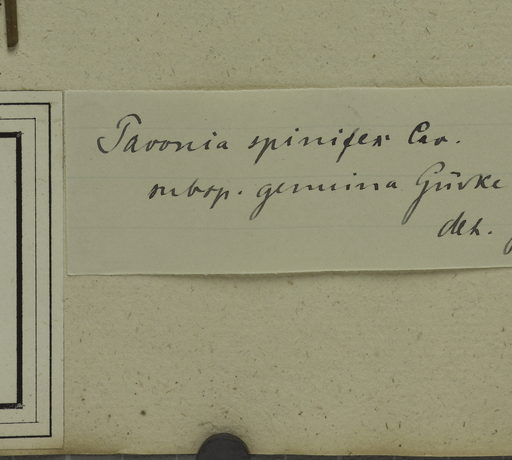 Pavonia spinifex Cav.
subsp. genuina Gürke
det.